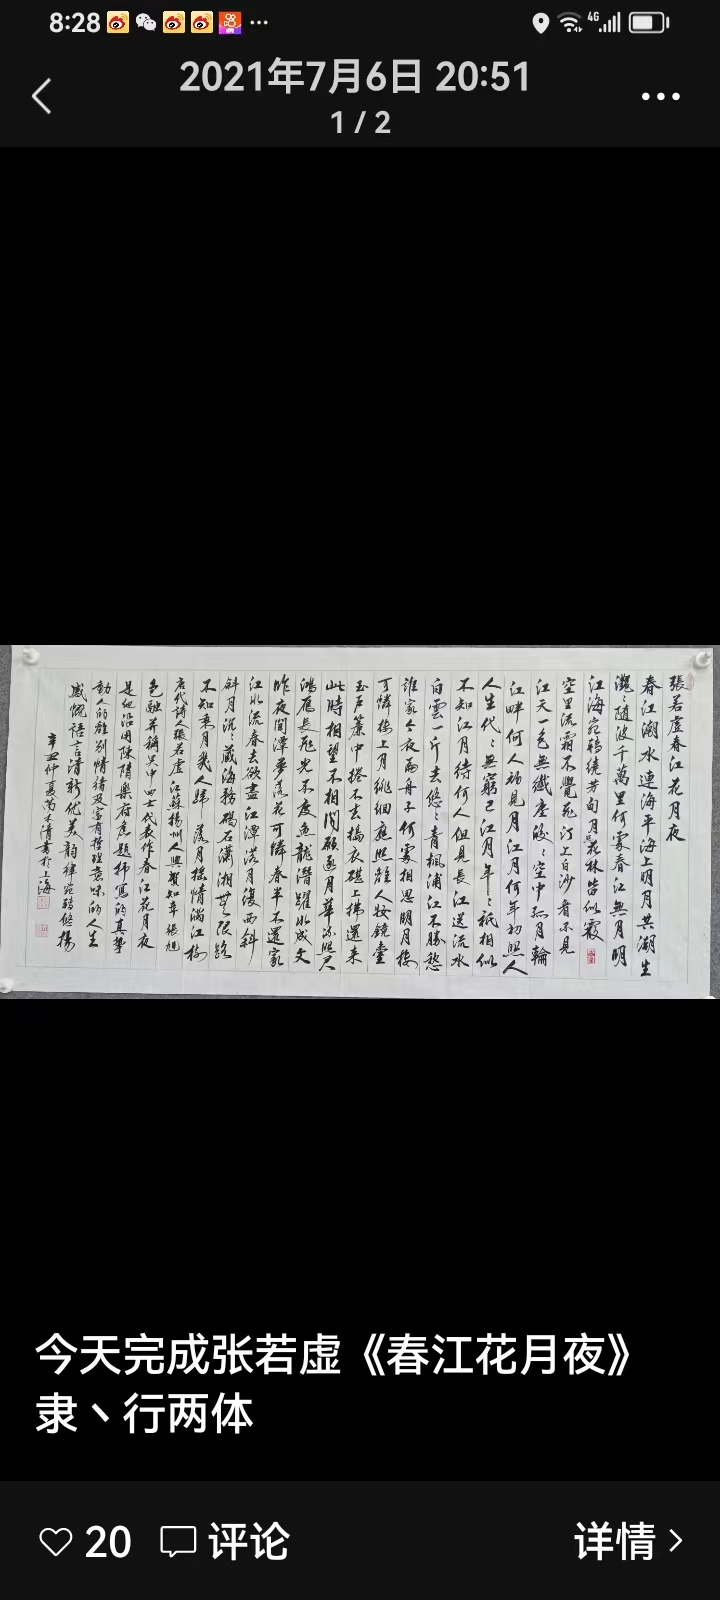 8:28
4G
2021年7月6日 20:51
1 / 2
張若虛春江花月夜
春江潮水連海平海上明月共潮生
灩〻隨波千萬里何處春江無月明
江海宛轉繞芳甸月照花林皆似霰
空里流霜不覺飛汀上白沙看不見
江天一色無纖塵皎〻空中孤月輪
江畔何人初見月江月何年初照人
人生代〻無窮已江月年〻祇相似
不知江月待何人但見長江送流水
白雲一片去悠〻青楓浦江不勝愁
誰家今夜扁舟子何處相思明月樓
可憐樓上月徘徊應照離人妝鏡臺
玉戶簾中捲不去搗衣砧上拂還來
此時相望不相聞願逐月華流照尺
鴻雁長飛光不度魚龍潛躍水成文
昨夜閒潭夢落花可憐春半不還家
江水流春去欲盡江潭落月復西斜
斜月沉〻藏海霧碣石瀟湘無限路
不知乘月幾人歸 落月搖情滿江樹
唐代詩人張若虛江蘇揚州人與賀知章張旭
包融并稱吳中四士代表作春江花月夜
是他沿用陳隋樂府舊題抒寫的真摯
動人的離別情緒及富有哲理意味的人生
感慨語言清新优美韵律宛轉悠揚
辛丑仲夏 清書於上海
今天完成张若虚《春江花月夜》
隶丶行两体
20 评论 详情